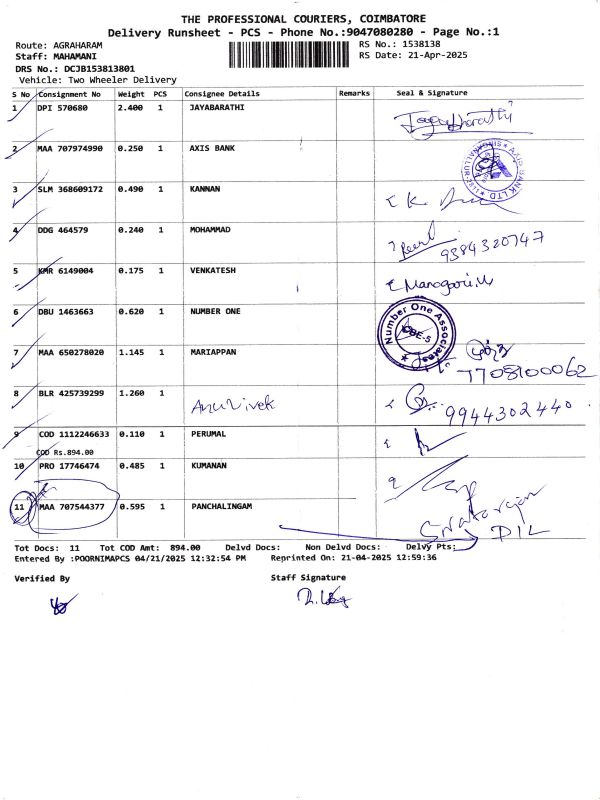 THE PROFESSIONAL COURIERS, COIMBATORE
Delivery Runsheet - PCS - Phone No.:9047080280 - Page No.:1
Route: AGRAHARAM
Staff: MAHAMANI
RS No.: 1538138
RS Date: 21-Apr-2025
DRS No.: DCJB153813801
Vehicle: Two Wheeler Delivery
S No Consignment No Weight PCS Consignee Details Remarks Seal & Signature
1 DPI 570680 2.400 1 JAYABARATHI Jayabharathi
2 MAA 707974990 0.250 1 AXIS BANK
AXIS BANK LTD
3 SLM 368609172 0.490 1 KANNAN
4 DDG 464579 0.240 1 MOHAMMAD 9384320747
5 KMR 6149004 0.175 1 VENKATESH Manogari.M
6 DBU 1463663 0.620 1 NUMBER ONE
Number One Associates
CBE-5
7 MAA 650278020 1.145 1 MARIAPPAN 7708100062
8 BLR 425739299 1.260 1 Anu Vivek 9944302440
9 COD 1112246633 0.110 1 PERUMAL
COD Rs.894.00
10 PRO 17746474 0.485 1 KUMANAN
11 MAA 707544377 0.595 1 PANCHALINGAM
Tot Docs: 11 Tot COD Amt: 894.00 Delvd Docs: Non Delvd Docs: Delvy Pts:
Entered By :POORNIMAPCS 04/21/2025 12:32:54 PM Reprinted On: 21-04-2025 12:59:36
Verified By Staff Signature